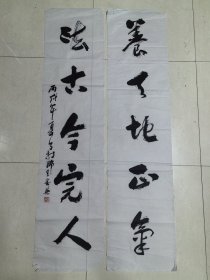 養天地正氣
法古今完人
丙戌年夏